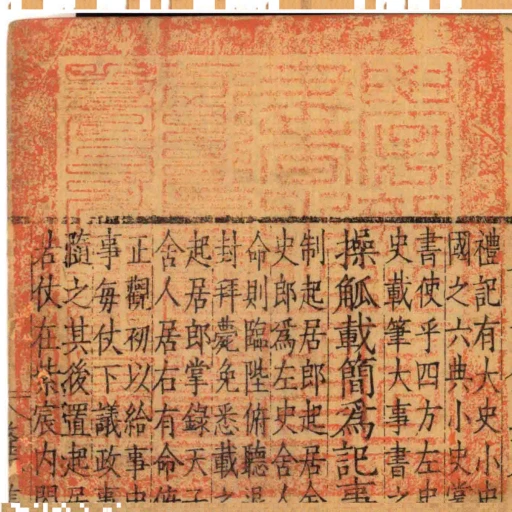 禮記有大史小史
國之六典小史掌
書使乎四方左史
史載筆大事書之
操觚載簡為記事
制起居郎起居舍
史郎為左史舍人
命則臨陛俯聽退
封拜薨免悉載之
起居郎掌錄天子
舍人居右有命俯
正觀初以給事中
事每仗下議政事
隨之其後置起居
若仗在紫宸内閤